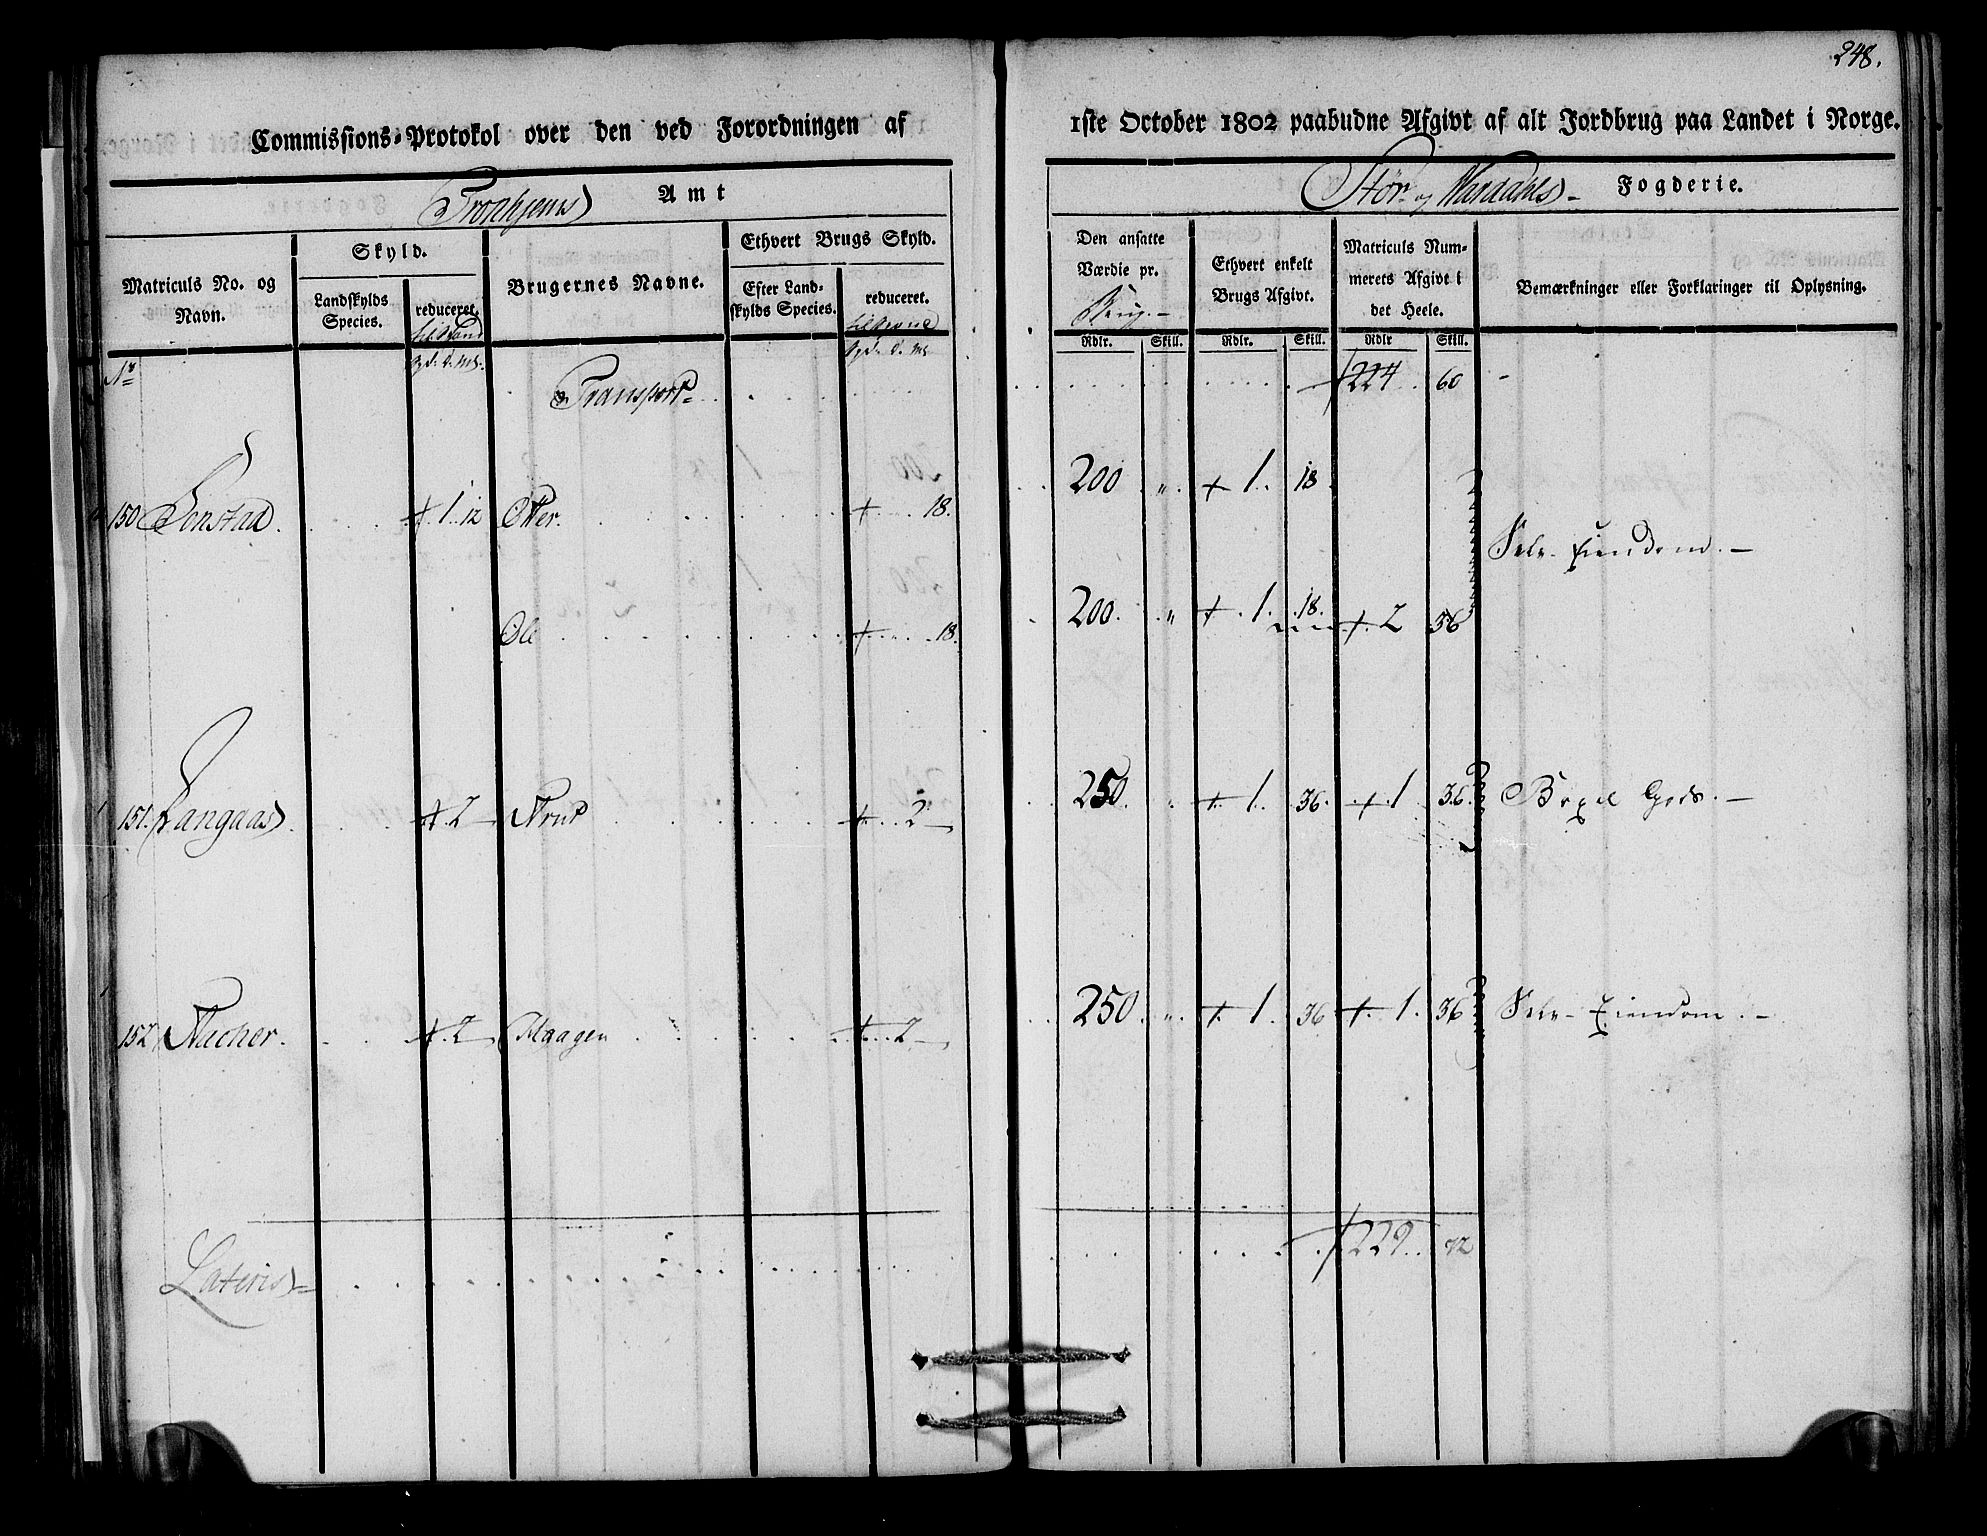 248.
Commissions-Protokol over den ved Forordningen af 1ste October 1802 paabudne Afgivt af alt Jordbrug paa Landet i Norge.
Tronhjems Amt
Stör- og Værdahls- Fogderie.
Matriculs No. og Navn.
Skyld.
Landskylds Species.
reduceret.
Brugernes Navne.
Ethvert Brugs Skyld.
Efter Landskylds Species.
reduceret.
Den ansatte Værdie pr. Brug.-
Ethvert enkelt Brugs Afgivt.
Matriculs Nummerets Afgivt i det Heele.
Bemærkninger eller Forklaringer til Oplysning.
Rdlr. Skill. Rdlr. Skill. Rdlr Skill.
No
Transport 224 60 -
150 1 12 Otter 18. 200 " 1 18
Selv Eiendom. -
Ole 18. 200 " 1 18. 2 36
151. Aangaas 2 - 2 - 250 " 1 36. 1 36. Böxel Gods. -
152 Nacher. 2 - Maagen 2 - 250 " 1 36 1 36 Selv Eiendom. -
Lateris 229 72